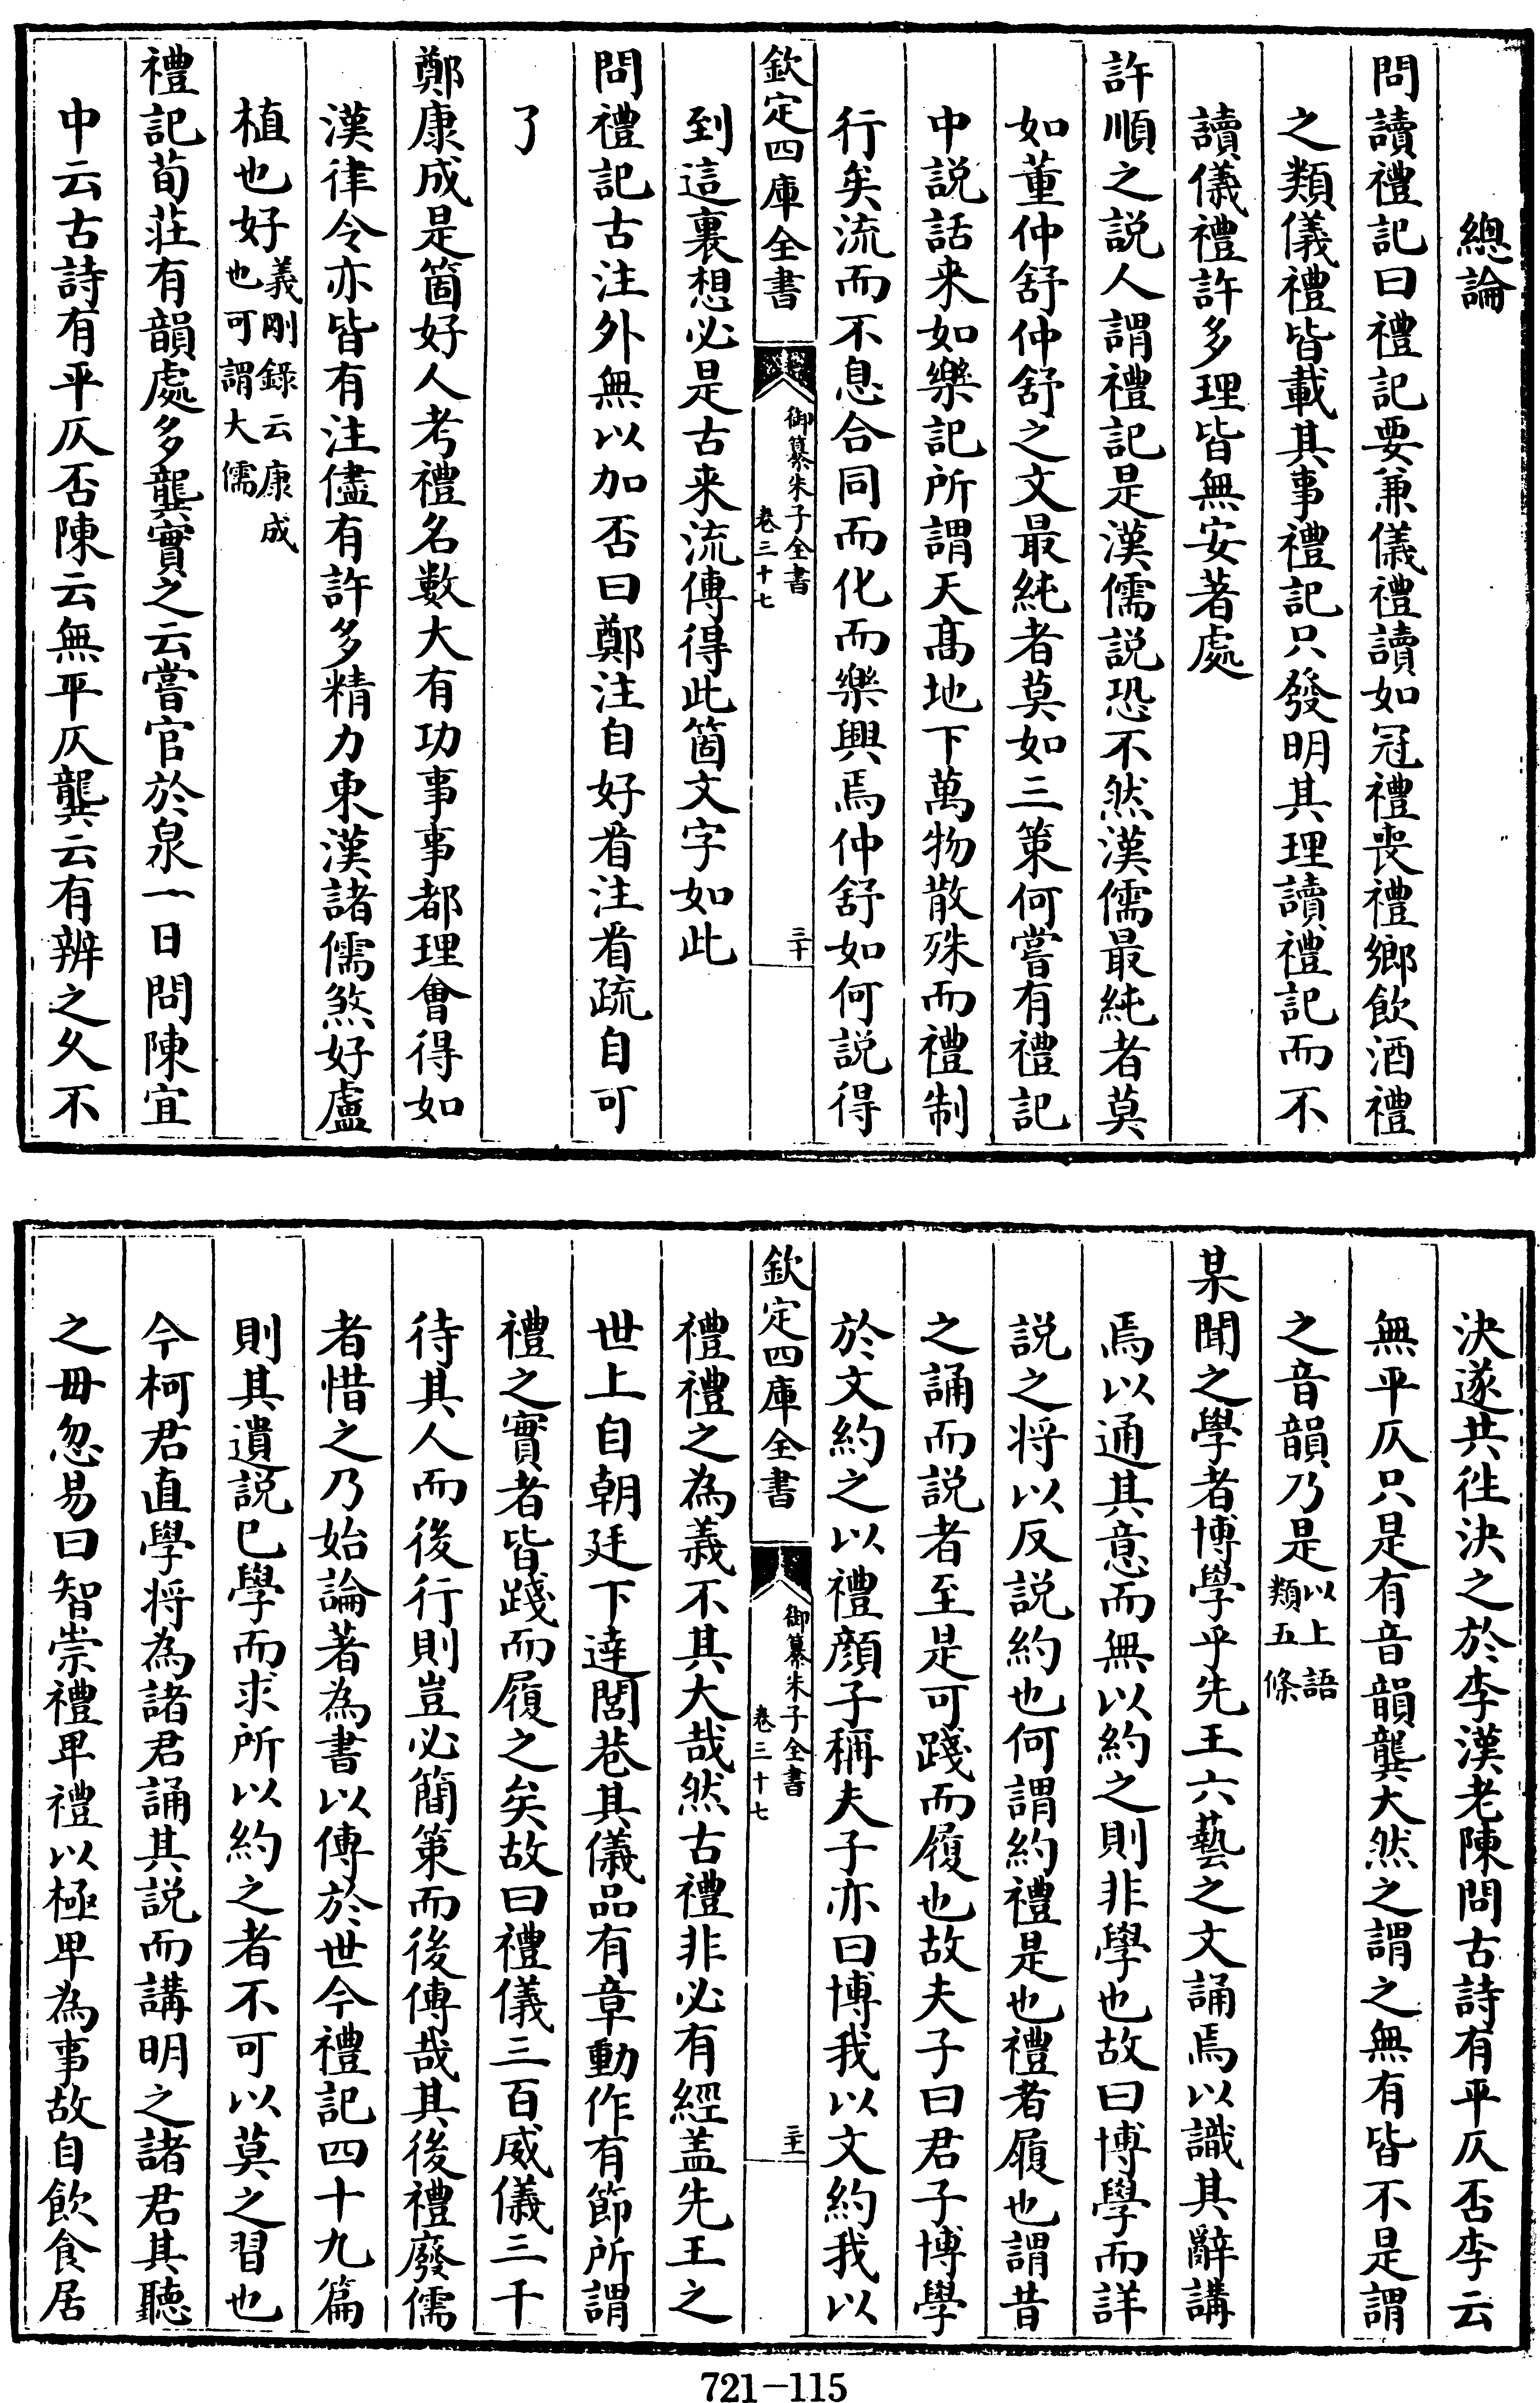 總論
問讀禮記曰禮記要兼儀禮讀如冠禮喪禮鄉飲酒禮
之類儀禮皆載其事禮記只發明其理讀禮記而不
讀儀禮許多理皆無安著處
許順之説人謂禮記是漢儒説恐不然漢儒最純者莫
如董仲舒仲舒之文最純者莫如三策何嘗有禮記
中説話来如樂記所謂天髙地下萬物散殊而禮制
行矣流而不息合同而化而樂興焉仲舒如何説得
欽定四庫全書
御纂朱子全書
卷三十七
三十
到這裏想必是古来流傳得此箇文字如此
問禮記古注外無以加否曰鄭注自好看注看疏自可
了
鄭康成是箇好人考禮名數大有功事事都理會得如
漢律令亦皆有注儘有許多精力東漢諸儒煞好盧
植也好義剛錄云康成
也可謂大儒
禮記荀莊有韻處多龔實之云嘗官於泉一日問陳宜
中云古詩有平仄否陳云無平仄龔云有辨之久不
決遂共徃決之於李漢老陳問古詩有平仄否李云
無平仄只是有音韻龔大然之謂之無有皆不是謂
之音韻乃是以上語
類五條
某聞之學者博學乎先王六藝之文誦焉以識其辭講
焉以通其意而無以約之則非學也故曰博學而詳
説之将以反説約也何謂約禮是也禮者履也謂昔
之誦而説者至是可踐而履也故夫子曰君子博學
於文約之以禮顔子稱夫子亦曰博我以文約我以
欽定四庫全書
御纂朱子全書
卷三十七
三十一
禮禮之為義不其大哉然古禮非必有經盖先王之
世上自朝廷下達閭巷其儀品有章動作有節所謂
禮之實者皆踐而履之矣故曰禮儀三百威儀三千
待其人而後行則豈必簡策而後傳哉其後禮廢儒
者惜之乃始論著為書以傳於世今禮記四十九篇
則其遺説已學而求所以約之者不可以莫之習也
今柯君直學将為諸君誦其説而講明之諸君其聽
之毋忽易曰智崇禮卑禮以極卑為事故自飲食居
721-115